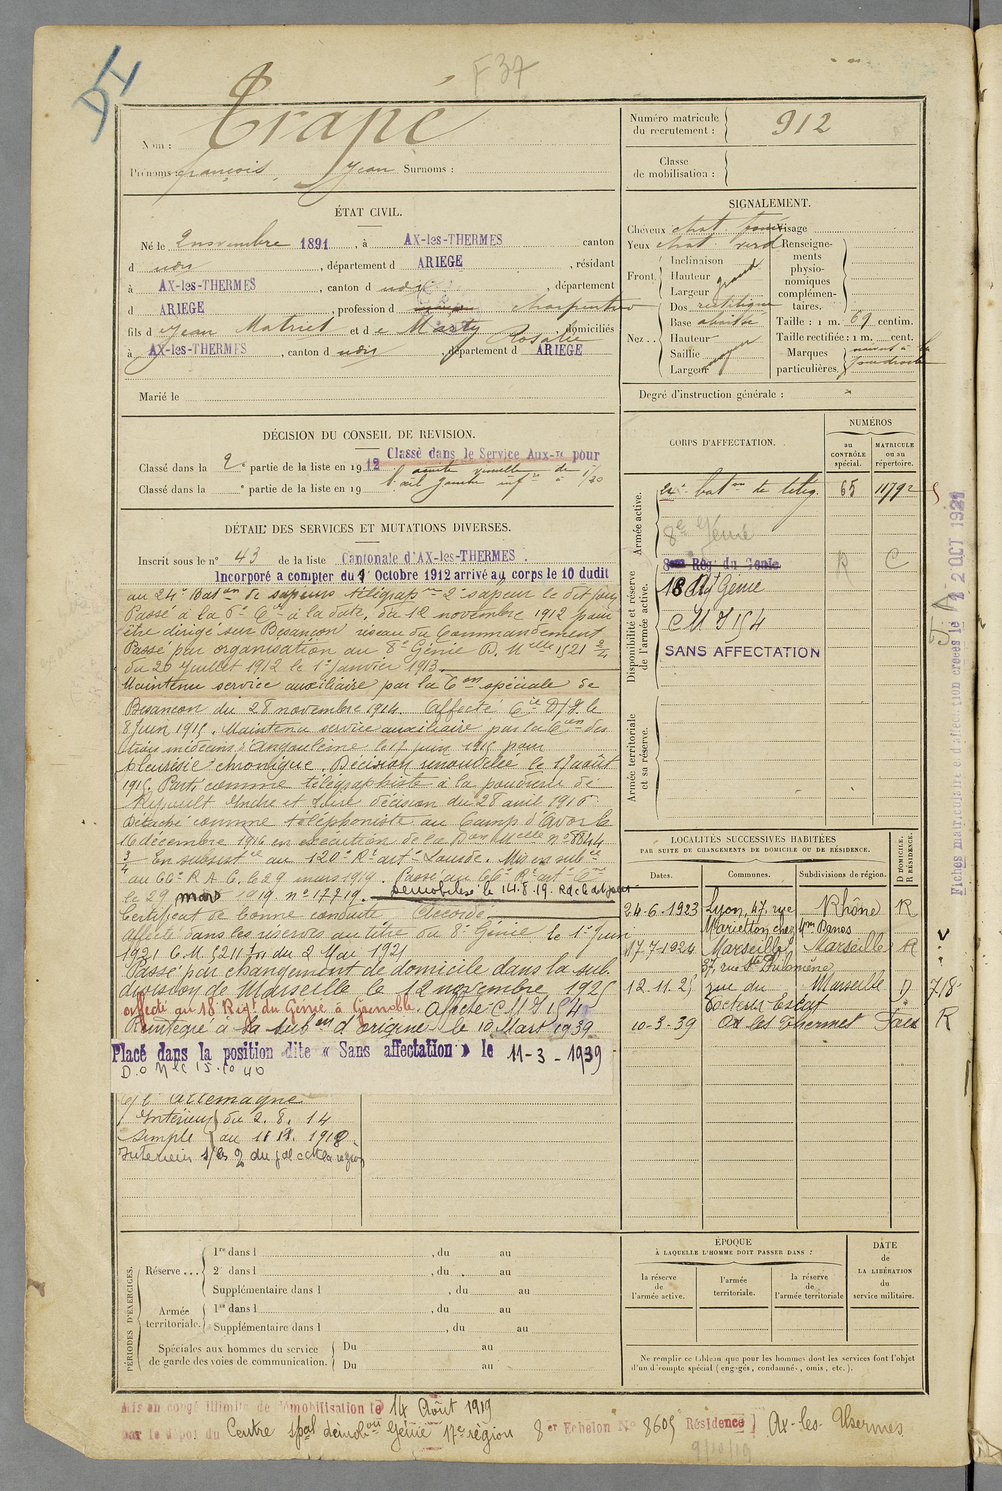 F37
Nom : Trapé
Prénoms : françois, Jean Surnoms :
Numéro matricule du recrutement : 912
Classe de mobilisation :
ÉTAT CIVIL.
Né le 2 novembre 1891, à AX-les-THERMES canton
d udis, département d ARIEGE, résidant
à AX-les-THERMES, canton d udis, département
d ARIEGE, profession d charpentier
fils d Jean Mathieu et d e Marty Rosalie, domiciliés
à AX-les-THERMES, canton d udis, département d ARIEGE
Marié le
SIGNALEMENT.
Cheveux chat. foncé Visage
Yeux chat verd
Front. Inclinaison
Hauteur
Largeur grand
Nez.. Dos rectiligne
Base abaissée
Hauteur
Saillie
Largeur moyen
Renseignements physionomiques complémentaires.
Taille : 1 m. 69 centim.
Taille rectifiée : 1 m. cent.
Marques particulières.
Degré d'instruction générale :
DÉCISION DU CONSEIL DE REVISION.
Classé dans la 2e partie de la liste en 1912 Classé dans le Service Aux-re pour
acuité visuelle de
Classé dans la e partie de la liste en 19 l'œil gauche infre à 1/20
DÉTAIL DES SERVICES ET MUTATIONS DIVERSES.
Inscrit sous le n° 43 de la liste Cantonale d'AX-les-THERMES
Incorporé a compter du 9 Octobre 1912 arrivé au corps le 10 dudit
au 24e Baton de sapeurs télégraph 2e sapeur le dit jour
Passé à la 6e Cie à la date du 12 novembre 1912 pour
être dirigé sur Besançon réseau du Commandement
Passé par organisation au 8e Génie D. Mlle 1521 2/4
du 26 Juillet 1912 le 1er Janvier 1913.
Maintenu service auxiliaire par la Con spéciale de
Besançon du 28 novembre 1914. Affecté Cie D/J. le
8 Juin 1915. Maintenu service auxiliaire par la Con des
trois médecins d'Angoulême le 17 juin 1915 pour
pleurésie chronique. Décision renouvelée le 17 août
1915. Parti comme télégraphiste à la poudrerie de
Ripault Indre et Loire décision du 28 avril 1916.
Détaché comme téléphoniste au Camp d'Avor le
16 décembre 1916 en exécution de la Don Mlle n° 58144
3/4 En subsistce au 120e Rt artie Lourde. Mis en subce
au 66e R.A.C. le 29 mars 1919. Passé au 66e Rt artie Cne
le 29 mars 1919 n° 17719. Démobilisé le 14.8.19.
Certificat de bonne conduite Accordé.
Affecté dans les réserves au titre du 8e Génie le 1er Juin
1921 C.M. 5211 1/11 du 2 Mai 1921
Passé par changement de domicile dans la sub.
division de Marseille le 12 novembre 1925
affecté au 18e Régt du Génie à Grenoble. Affecté CMJ 154
Réintégré à la subon d'origine le 10 Mars 1939
Placé dans la position dite « Sans affectation » le 11-3-1939
D.O Mle 15.10 40
c/ l'Allemagne
Intérieur du 2. 8. 14
simple au 1918
CORPS D'AFFECTATION.
NUMÉROS
au CONTRÔLE spécial.
MATRICULE ou au répertoire.
Armée active.
24e baton de télég. 65 11792
8e Génie
8ème Rég du Génie R C
Disponibilité et réserve de l'armée active.
18 Rég Génie
CMJ 154
SANS AFFECTATION
Armée territoriale et sa réserve.
Fiches matriculaire et d'affectation créées le 22 OCT 1929
LOCALITÉS SUCCESSIVES HABITÉES
PAR SUITE DE CHANGEMENTS DE DOMICILE OU DE RÉSIDENCE.
Dates. Communes. Subdivisions de région. D DOMICILE. R RÉSIDENCE.
24-6-1923 Lyon, 47, rue Marietton chez Mme Danos Rhône R
17.7.1924 Marseille 37, rue Ste Philomène Marseille R
12.11.25 rue du Docteur Escat Marseille D 718
10-3-39 Ax les Thermes Foix R
PÉRIODES D'EXERCICES.
Réserve ... 1re dans l , du au
2e dans l , du au
Supplémentaire dans l , du au
Armée territoriale. 1re dans l , du au
Supplémentaire dans l , du au
Spéciales aux hommes du service de garde des voies de communication. Du au
Du au
ÉPOQUE
À LAQUELLE L'HOMME DOIT PASSER DANS :
la réserve de l'armée active.
l'armée territoriale.
la réserve de l'armée territoriale
DATE de LA LIBÉRATION du service militaire.
Ne remplir ce tableau que pour les hommes dont les services font l'objet
d'un décompte spécial (engagés, condamnés, omis, etc.).
Mis en congé illimité de démobilisation le 14 Août 1919
par le dépôt du Centre spal démobon Génie 17e région 8er Echelon N° 8605 Résidence Ax-les-Thermes
9/10/19